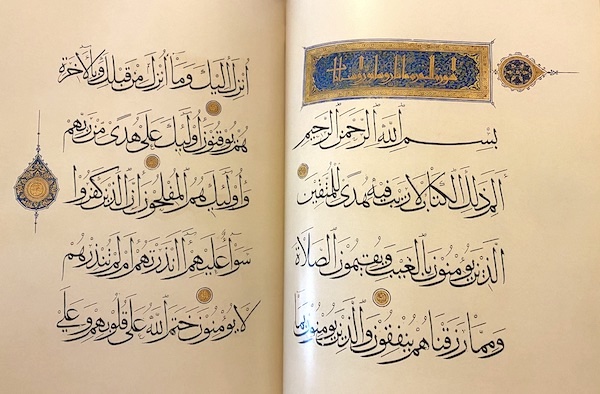 بسم الله الرحمن الرحيم
الم ذلك الكتاب لا ريب فيه هدى للمتقين
الذين يؤمنون بالغيب ويقيمون الصلاة
ومما رزقناهم ينفقون والذين يؤمنون بما
أنزل إليك وما أنزل من قبلك وبالآخرة
هم يوقنون أولئك على هدى من ربهم
وأولئك هم المفلحون إن الذين كفروا
سواء عليهم أأنذرتهم أم لم تنذرهم
لا يؤمنون ختم الله على قلوبهم وعلى